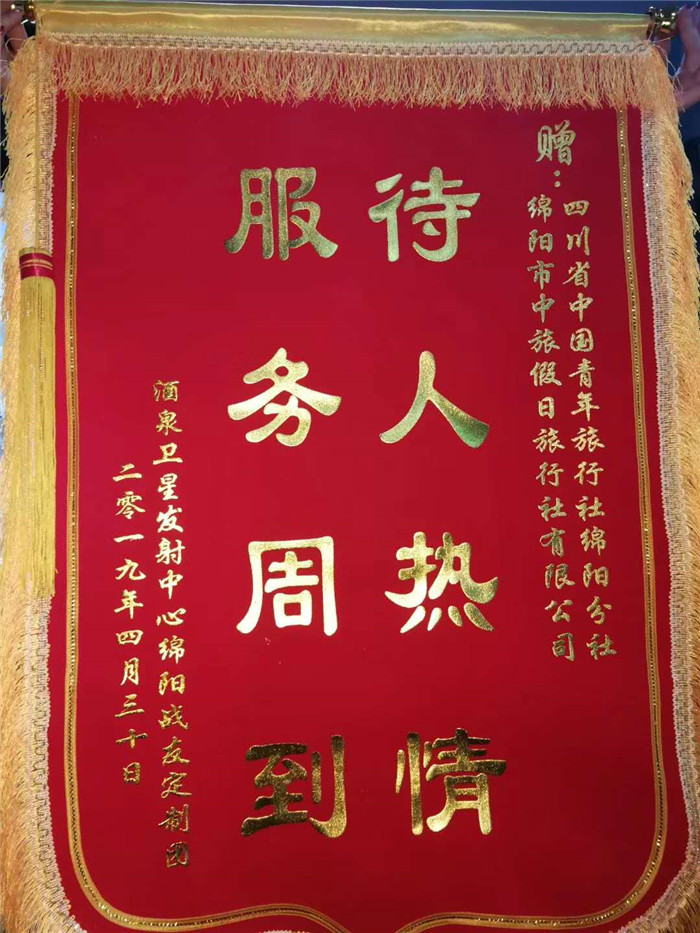 赠：
四川省中国青年旅行社绵阳分社
绵阳市中旅假日旅行社有限公司
待人热情
服务周到
酒泉卫星发射中心绵阳战友定制团
二零一九年四月三十日